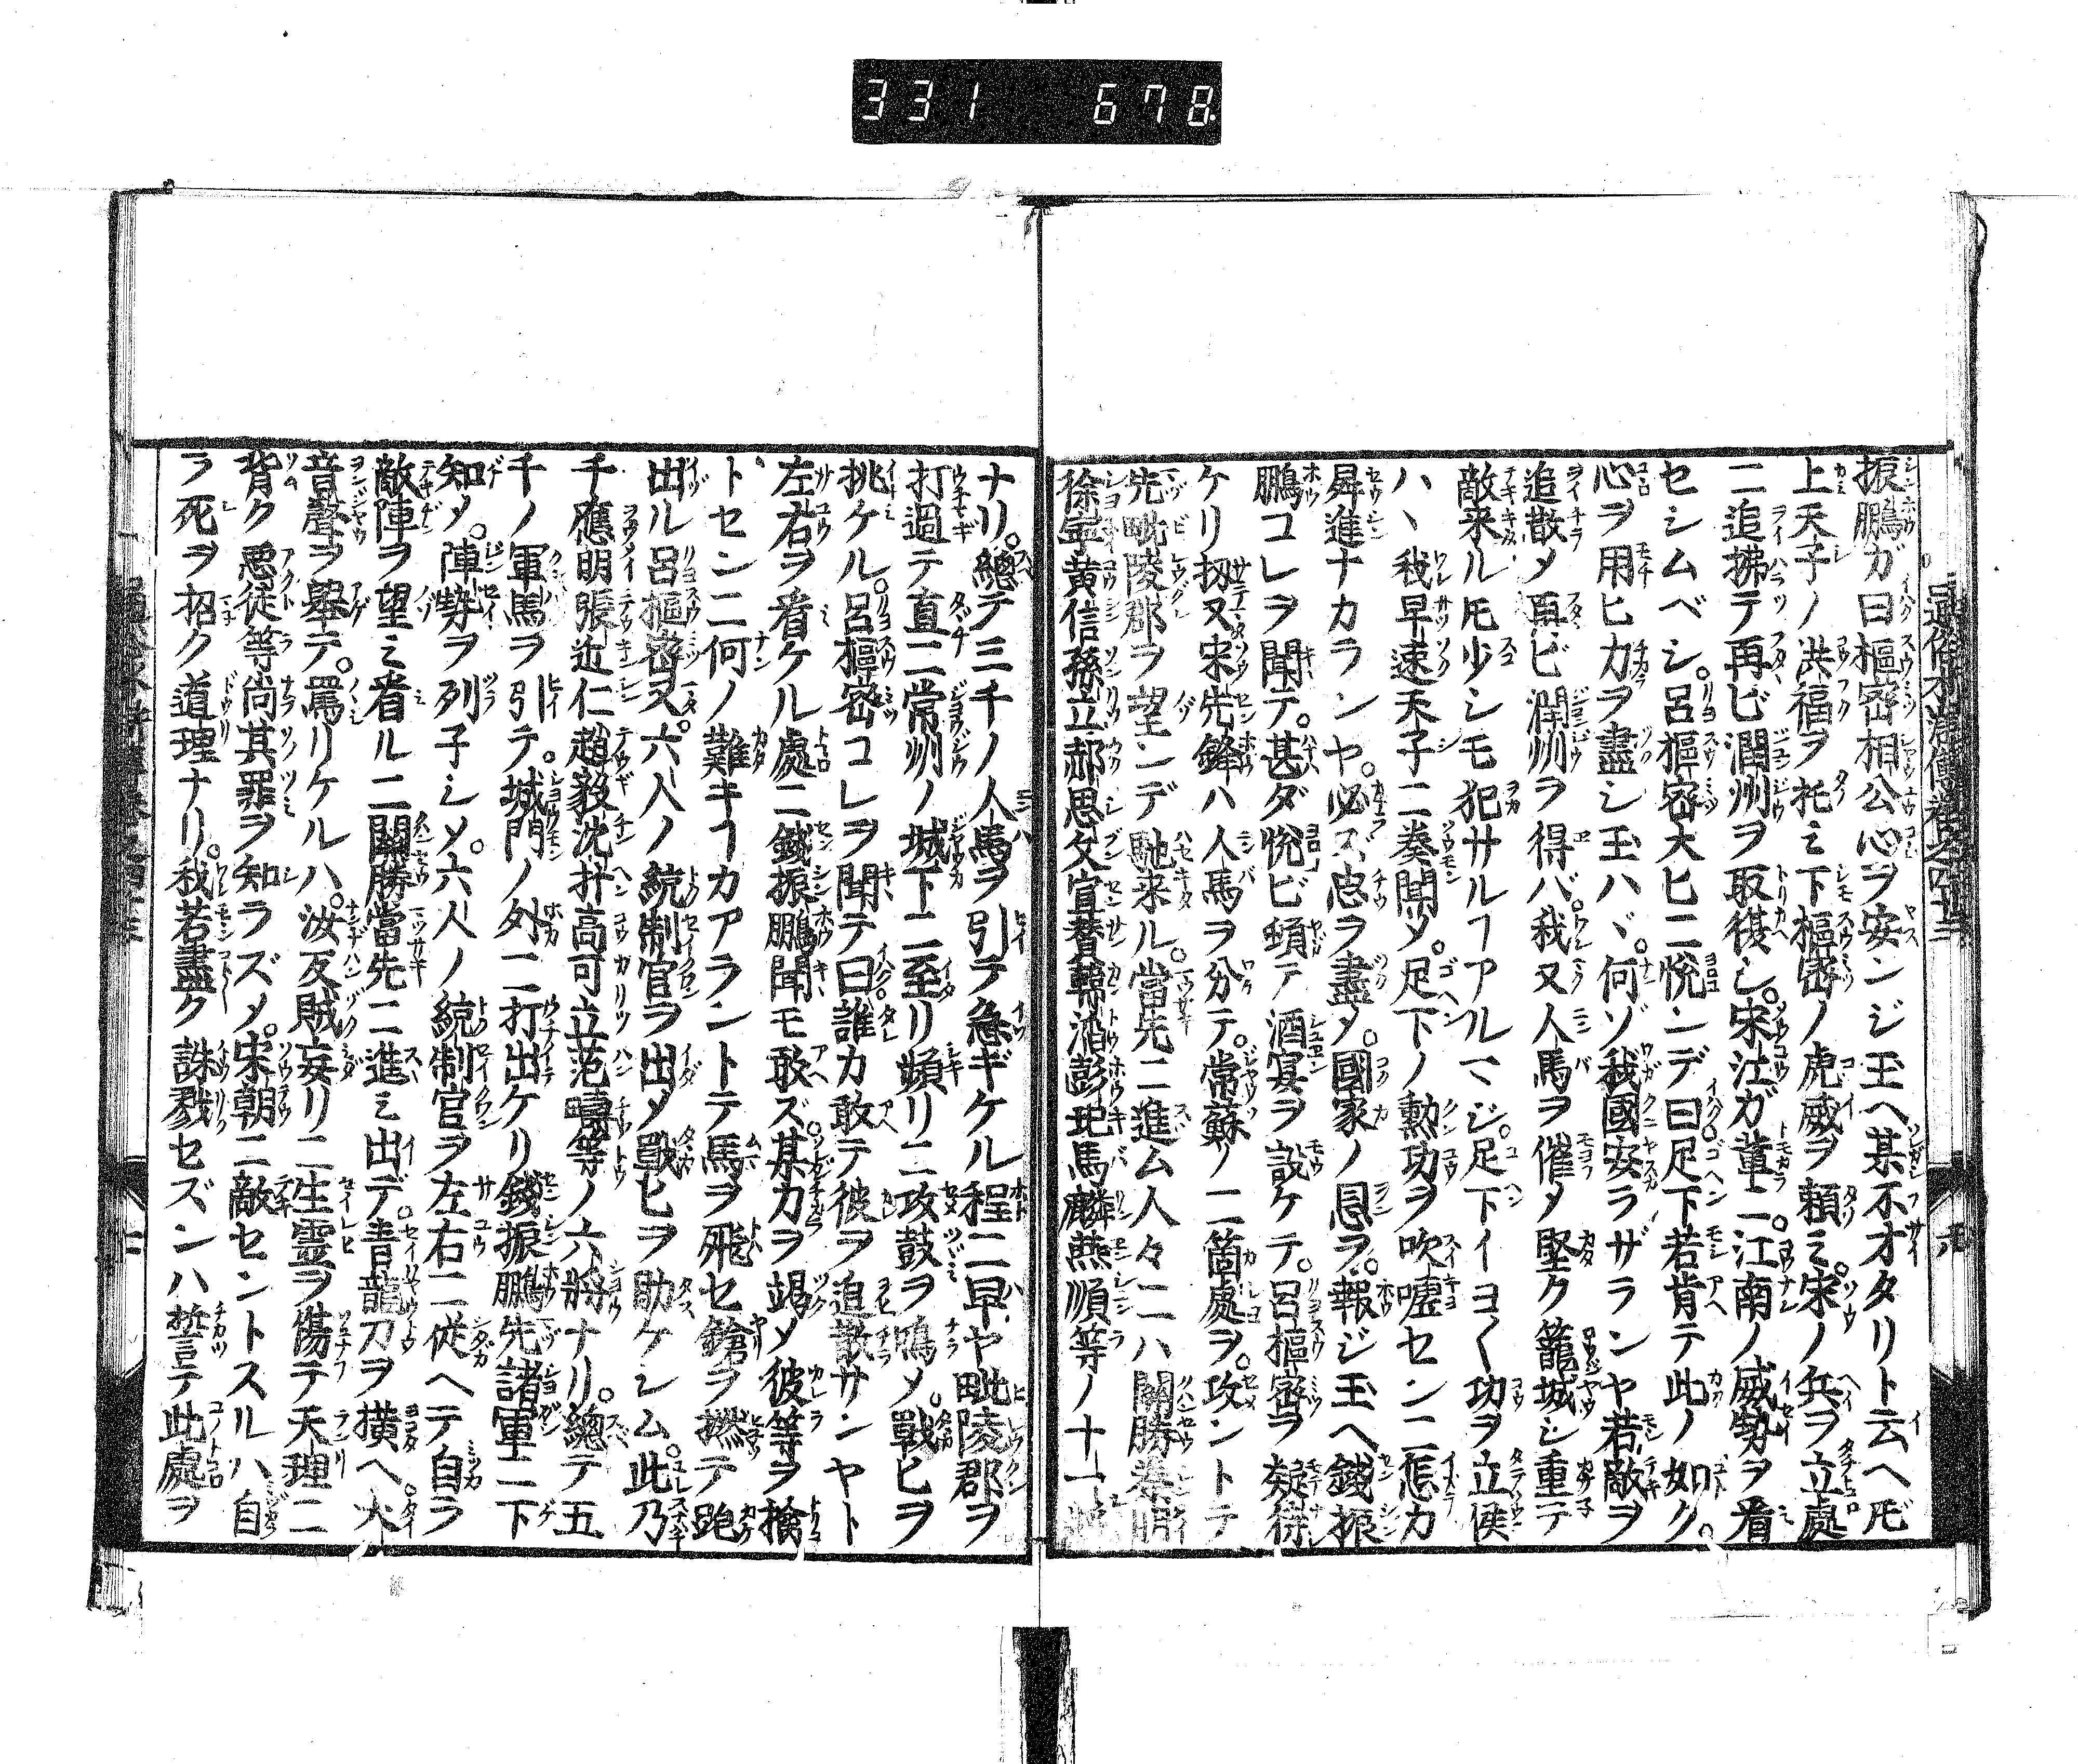 331 678
振鵬ガ曰樞密相公心ヲ安ンジ玉ヘ某不才タリト云ヘ𪜈
上天子ノ洪福ヲ托ミ下樞密ノ虎威ヲ頼ミ宋ノ兵ヲ立處
ニ追拂テ再ビ潤州ヲ取復シ。宋江ガ輩ニ。江南ノ威勢ヲ看
セシムベシ。呂樞密大ヒニ悦ンデ曰足下若肯テ此ノ如ク。
心ヲ用ヒ力ヲ盡シ玉ハヾ。何ゾ我國安ラザランヤ若敵ヲ
追散メ再ビ潤州ヲ得バ。我又人馬ヲ催メ堅ク籠城シ重テ
敵来ル𪜈少シモ犯サルヿアルマジ。足下イヨ〱功ヲ立侯
ハヽ我早速天子ニ奏聞メ。足下ノ勲功ヲ吹嘘センニ怎カ
昇進ナカランヤ。必ズ忠ヲ盡メ。國家ノ恩ヲ。報ジ玉ヘ錢振
鵬コレヲ聞テ。甚ダ悦ビ頓テ酒宴ヲ設ケテ。呂樞密ヲ疑待
ケリ扨又宋先鋒ハ人馬ヲ分テ。常蘇ノ二箇處ヲ。攻ントテ
先毗陵郡ヲ望ンデ馳来ル。當先ニ進ム人々ニハ關勝秦明
徐寧黄信孫立郝思文宣賛韓滔彭玘馬麟燕順等ノ十一將
ナリ。總テ三千ノ人馬ヲ引テ急ギケル程ニ早ヤ毗陵郡ヲ
打過テ直ニ常州ノ城下ニ至リ頻リニ攻鼓ヲ鳴メ。戰ヒヲ
挑ケル。呂樞密コレヲ聞テ曰誰カ敢テ彼ヲ追散サンヤト
左右ヲ看ケル處ニ錢振鵬聞モ敢ズ。某力ヲ竭メ彼等ヲ擒
トセンニ何ノ難キヿカアラントテ馬ヲ飛セ鎗ヲ撚テ跑
出ル呂樞密又。六人ノ統制官ヲ出メ戰ヒヲ助ケシム。此乃
千應明張近仁趙毅沈抃高可立范疇等ノ六將ナリ。總テ五
千ノ軍馬ヲ引テ。城門ノ外ニ打出ケリ錢振鵬先諸軍ニ下
知メ。陣勢ヲ列子シメ。六人ノ統制官ヲ左右ニ從ヘテ自ラ
敵陣ヲ望ミ看ルニ關勝當先ニ進ミ出デ。青龍刀ヲ横ヘ。大
音聲ヲ舉テ。罵リケルハ。汝反賊妄リニ生霊ヲ傷テ天理ニ
背ク悪徒等尚其罪ヲ知ラズメ。宋朝ニ敵セントスルハ自
ラ死ヲ招ク道理ナリ。我若盡ク誅戮セズンハ誓テ此處ヲ